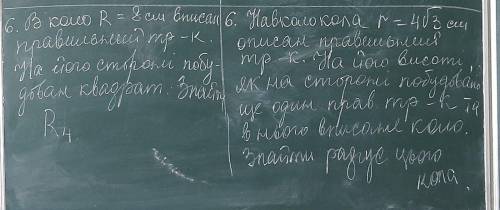 6. В коло R = 8 см вписан
правильний тр-к.
На його стороні побу-
дован квадрат. Знайти
R₄
6. Навколо кола r = 4√3 см
описан правильний
тр-к. На його висоті,
як на стороні побудовано
ще один прав. тр-к та
в нього вписане коло.
Знайти радіус цього
кола.